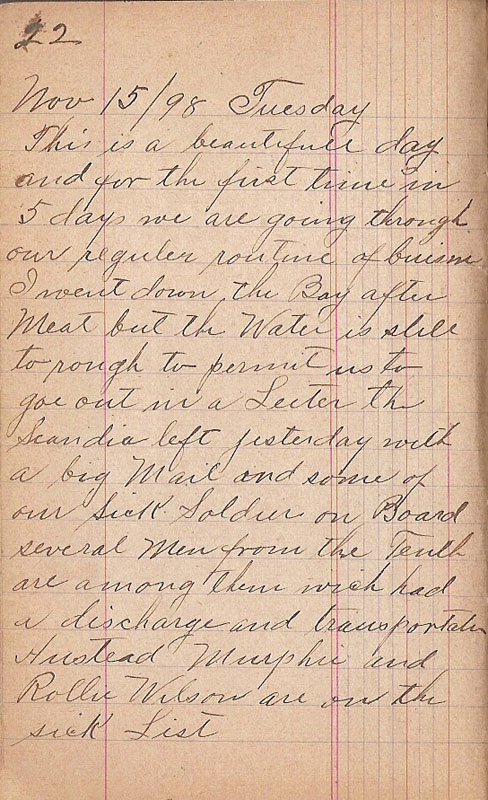 22
Nov 15/98 Tuesday
This is a beautifull day
and for the first time in
5 days we are going through
our reguler routine of buisne
I went down the Bay after
Meat but the Water is still
to rough to permit us to
goe out in a Leiter the
Scandia left yesterday with
a big Mail and some of
our Sick Soldier on Board
several Men from the Tenth
are among them wich had
a discharge and transportatn
Murphie and
Rollie Wilson are on the
sick List